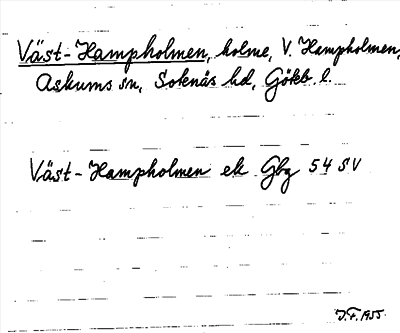 Väst-Hampholmen, holme, V. Hampholmen,
Askums sn, Sotenäs hd, Göteb. l.
Väst-Hampholmen ek Gbg 54 SV
J.F. 1955.